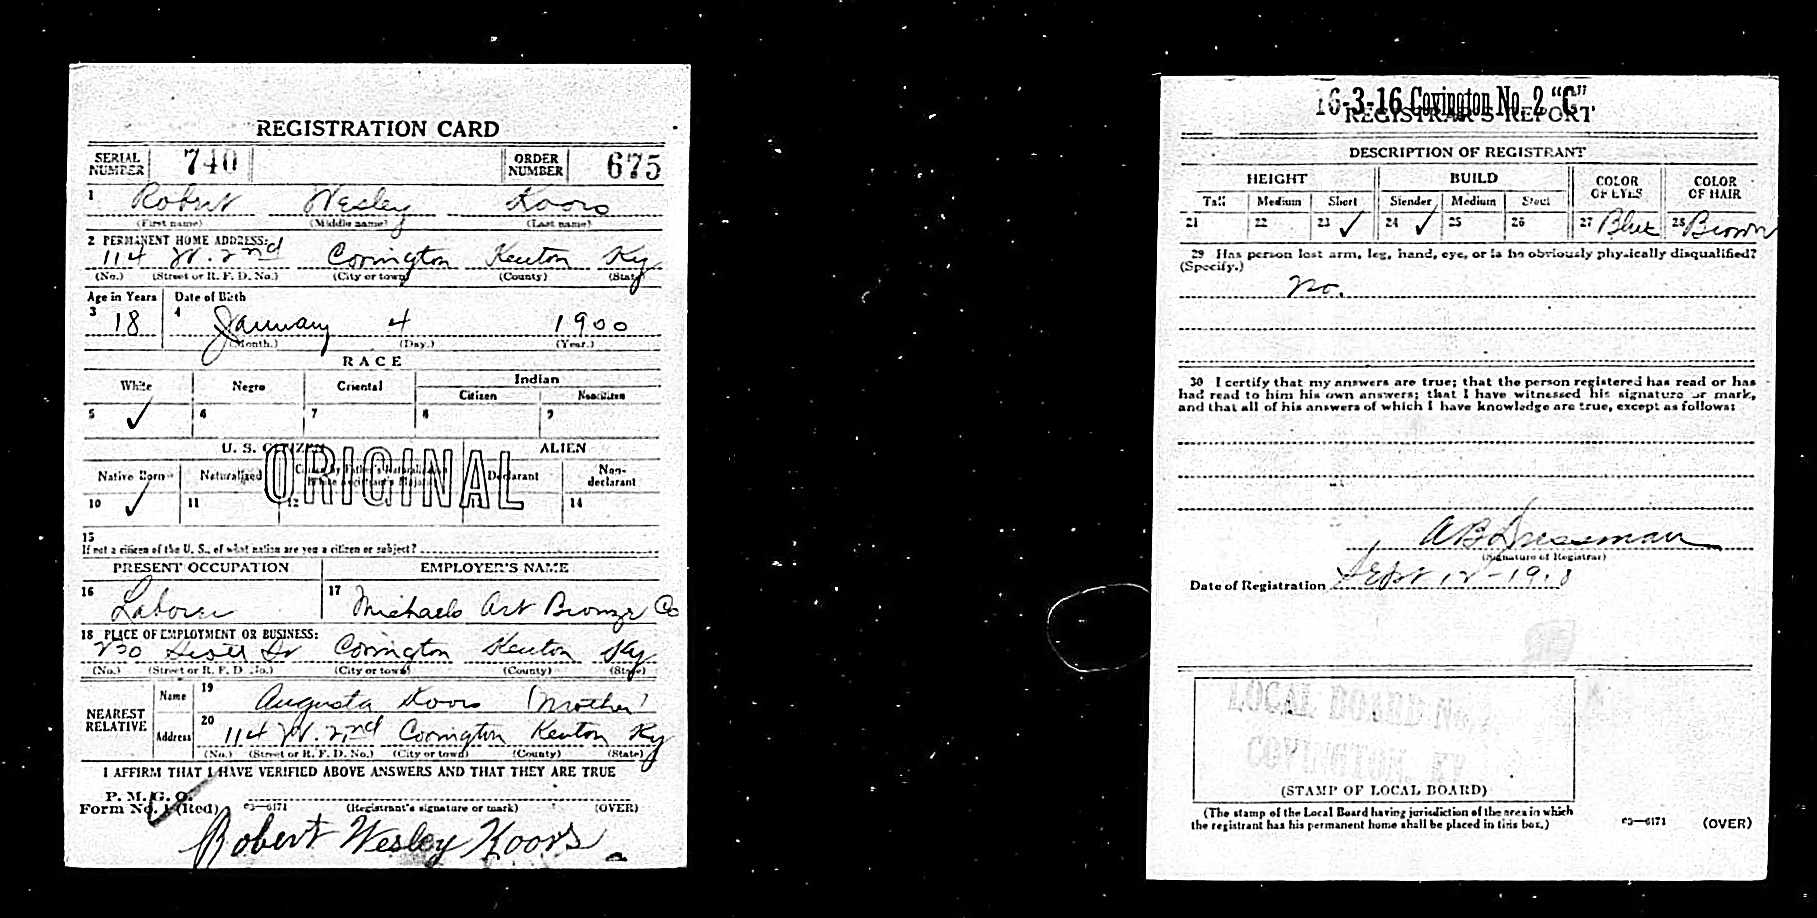 REGISTRATION CARD
SERIAL NUMBER 740 ORDER NUMBER 675
1 Robert Wesley Koors
(First name) (Middle name) (Last name)
2 PERMANENT HOME ADDRESS:
114 W. 2nd Covington Kenton Ky
(No.) (Street or R. F. D. No.) (City or town) (County) (State)
Age in Years Date of Birth
3 18 4 January 4 1900
(Month.) (Day.) (Year.)
RACE
White Negro Oriental Indian
Citizen Noncitizen
5 ✓ 6 7 8 9
U. S. CITIZEN ALIEN
ORIGINAL
Native Born Naturalized Citizen by Father's Naturalization Before Registrant's Majority Declarant Non-declarant
10 ✓ 11 12 13 14
15
If not a citizen of the U. S., of what nation are you a citizen or subject?
PRESENT OCCUPATION EMPLOYER'S NAME
16 Laborer 17 Michaels Art Bronze Co
18 PLACE OF EMPLOYMENT OR BUSINESS:
230 Scott St Covington Kenton Ky
(No.) (Street or R. F. D. No.) (City or town) (County) (State)
NEAREST RELATIVE
Name 19 Augusta Koors (Mother)
Address 20 114 W. 2nd Covington Kenton Ky
(No.) (Street or R. F. D. No.) (City or town) (County) (State)
I AFFIRM THAT I HAVE VERIFIED ABOVE ANSWERS AND THAT THEY ARE TRUE
P. M. G. O.
Form No. 1 (Red) 03—6171 (Registrant's signature or mark) (OVER)
Robert Wesley Koors
16-3-16 Covington No. 2 "C".
REGISTRAR'S REPORT
DESCRIPTION OF REGISTRANT
HEIGHT BUILD COLOR OF EYES COLOR OF HAIR
Tall Medium Short Slender Medium Stout
21 22 23 ✓ 24 ✓ 25 26 27 Blue 28 Brown
29 Has person lost arm, leg, hand, eye, or is he obviously physically disqualified?
(Specify.)
No.
30 I certify that my answers are true; that the person registered has read or has
had read to him his own answers; that I have witnessed his signature or mark,
and that all of his answers of which I have knowledge are true, except as follows:
A B Dressman
(Signature of Registrar)
Date of Registration Sept 12-1918
LOCAL BOARD No.
COVINGTON, KY
(STAMP OF LOCAL BOARD)
(The stamp of the Local Board having jurisdiction of the area in which
the registrant has his permanent home shall be placed in this box.)
03—6171 (OVER)